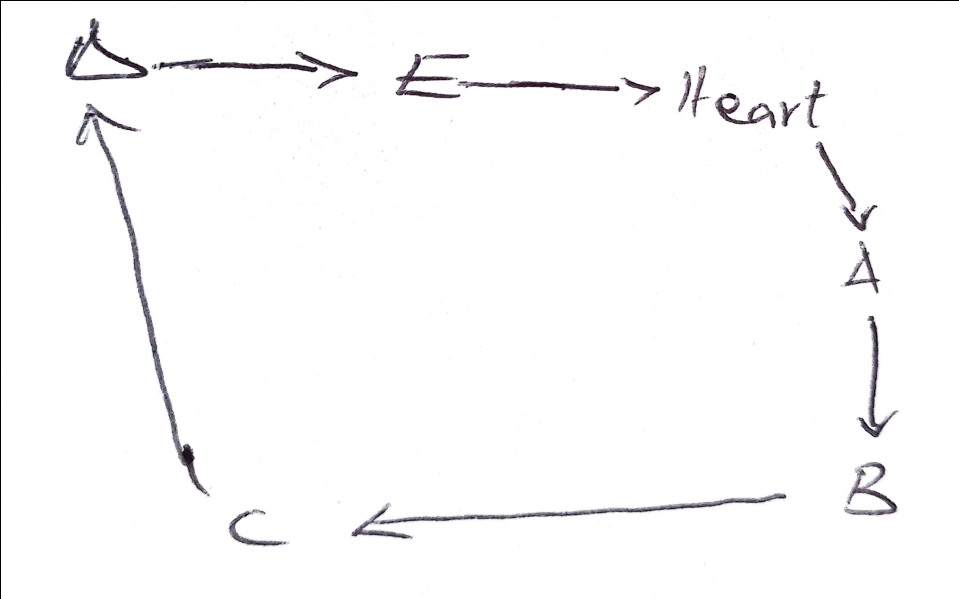 D → E → Heart
A
B
C